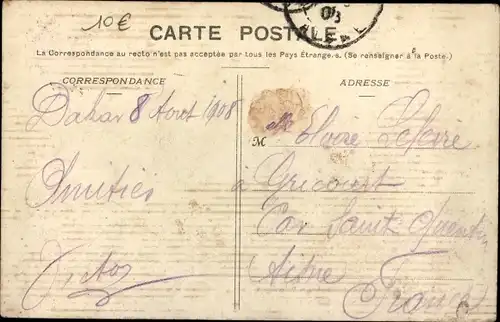 10€
CARTE POSTALE
La Correspondance au recto n'est pas acceptée par tous les Pays Étrangers. (Se renseigner à la Poste.)
CORRESPONDANCE
ADRESSE
Dakar 8 Aout 1908
Amitiés
M elle
à Gricourt
Par Saint Quentin
Aisne
France